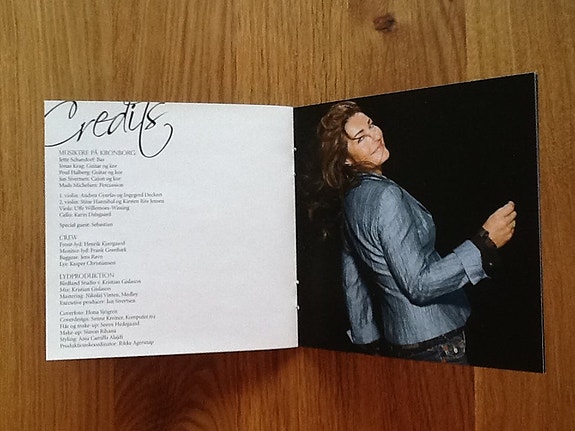 Credits
MUSIKERE PÅ KRONBORG
Jette Schandorf: Bas
Jonas Krag: Guitar og kor
Poul Halberg: Guitar og kor
Jan Sivertsen: Catjun og kor
Mads Michelsen: Percussion
1. violin: Andrea Gyarfas og Ingegerd Deckert
2. violin: Stine Hasbirk og Kirsten Riis Jensen
Viola: Uffe Willemoes-Wissing
Cello: Karin Dalsgaard
Special guest: Sebastian
CREW
Front-lyd: Henrik Kjærgaard
Monitor-lyd: Frank Grønbæk
Baggear: Jens Ravn
Lys: Kasper Christiansen
LYDPRODUKTION
Birdland Studio v. Kristian Gislason
Mix: Kristian Gislason
Mastering: Nikolaj Vinten, Medley
Executive producer: Jan Sivertsen
Coverfoto: Ilona Sjögren
Coverdesign: Senne Kreiner,
Hår og make-up: Søren Hedegaard
Make-up: Simon Rihana
Styling: Camilla
Produktionskoordinator: Rikke Agerskap